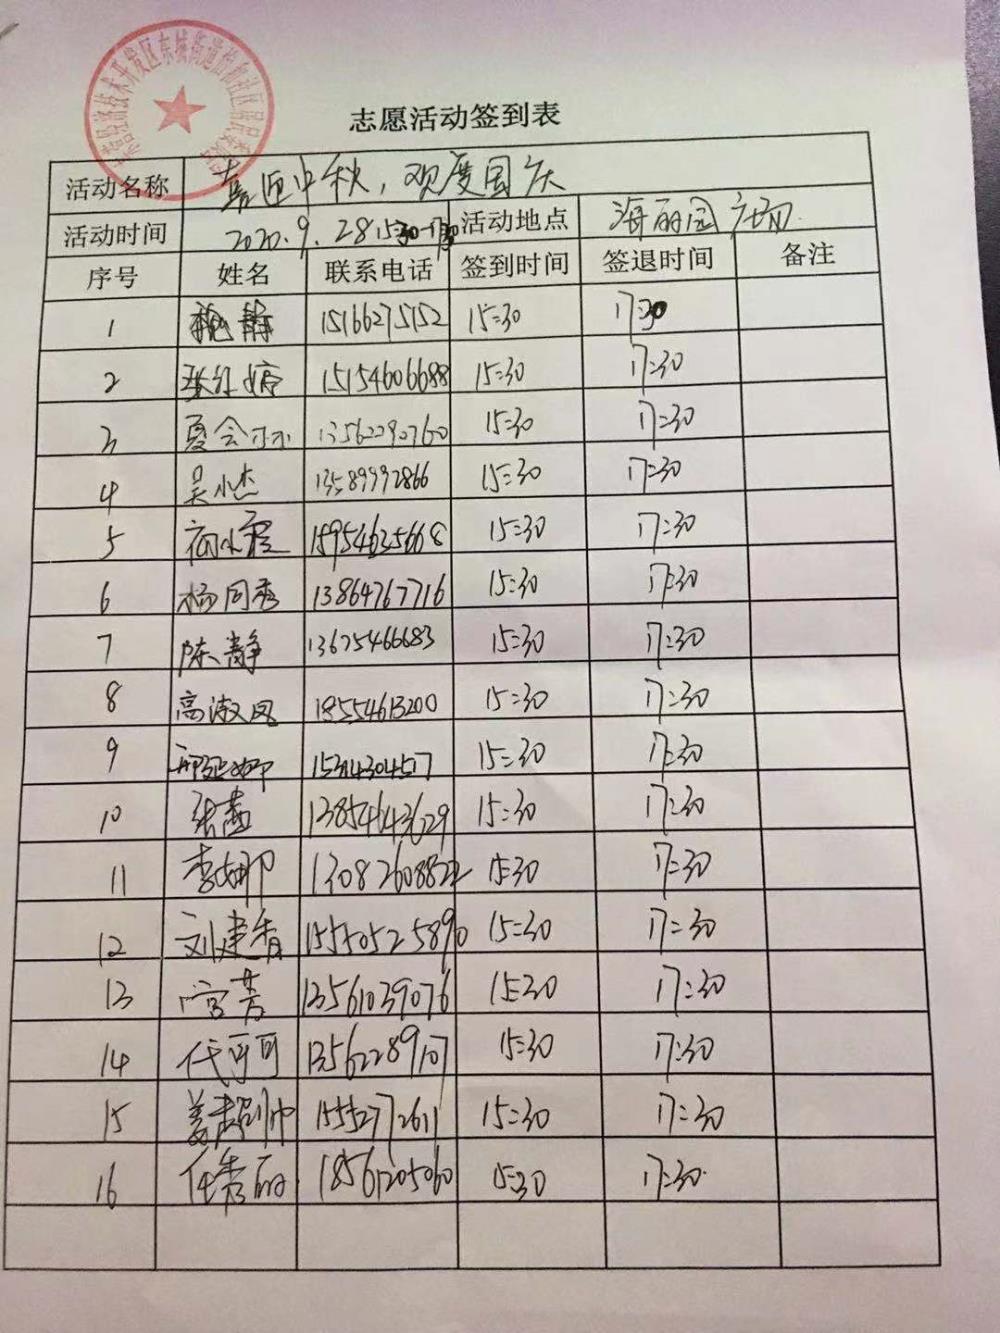 志愿活动签到表
活动名称 喜迎中秋，欢度国庆
活动时间 2020.9.28 15:30-17:30 活动地点 海丽园广场
序号 姓名 联系电话 签到时间 签退时间 备注
1 静 15166275152 15:30 17:30
2 15154606688 15:30 17:30
3 夏会 13562290760 15:30 17:30
4 吴小杰 13589992866 15:30 17:30
5 15954635668 15:30 17:30
6 杨同秀 13864767716 15:30 17:30
7 陈静 13675466683 15:30 17:30
8 高淑凤 18554613200 15:30 17:30
9 15314304517 15:30 17:30
10 张燕 13854643629 15:30 17:30
11 李娜 13082608822 15:30 17:30
12 刘建香 15550525890 15:30 17:30
13 宫芳 13561039076 15:30 17:30
14 代可可 13562289107 15:30 17:30
15 姜超帅 15552772611 15:30 17:30
16 任秀丽 18561205060 15:30 17:30